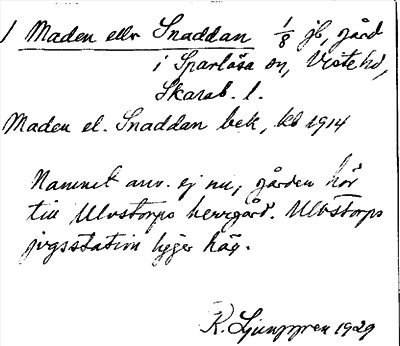 1 Maden ellr Snaddan 1/8 jb, gård
i Sparlösa sn, Viste hd,
Skarab. l.
Maden el. Snaddan bek, kb 1914
Namnet anv. ej nu, gården hör
till Ulvstorps herrgård. Ulvstorps
jvgsstation ligger här.
K. Ljunggren 1929